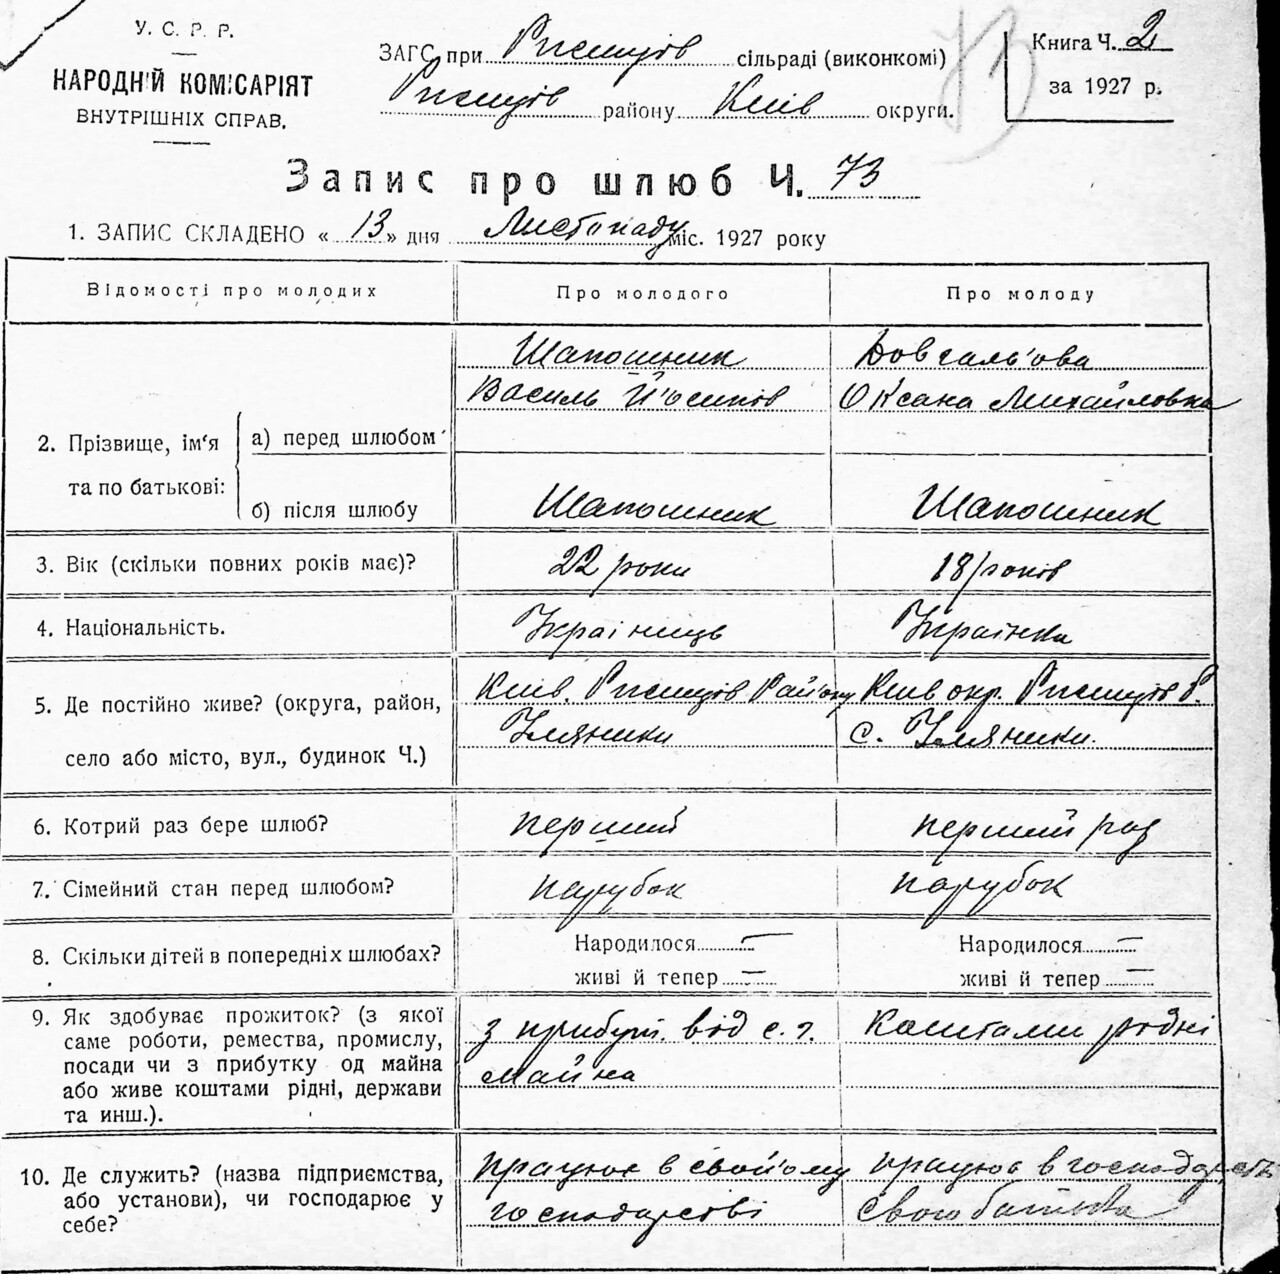 У. С. Р. Р.
НАРОДНІЙ КОМІСАРІЯТ
ВНУТРІШНІХ СПРАВ.
ЗАГС при Ржищів сільраді (виконкомі)
Ржищів району Київ округи.
Книга Ч. 2
за 1927 р.
73
Запис про шлюб Ч. 73
1. ЗАПИС СКЛАДЕНО « 13 » дня Листопаду міс. 1927 року
Відомості про молодих Про молодого Про молоду
Шапошник Довгаль'ова
Василь Й'осипів Оксана Михайловна
2. Прізвище, ім'я та по батькові: а) перед шлюбом
б) після шлюбу Шапошник Шапошник
3. Вік (скільки повних років має)? 22 роки 18 років
4. Національність. Українець Українка
5. Де постійно живе? (округа, район, Київ. Ржищів Району Київ окр. Ржищів р.
село або місто, вул., будинок Ч.) Уляники с. Уляники.
6. Котрий раз бере шлюб? перший перший раз
7. Сімейний стан перед шлюбом? парубок парубок
8. Скільки дітей в попередніх шлюбах? Народилося — Народилося —
живі й тепер — живі й тепер —
9. Як здобуває прожиток? (з якої з прибут. від с. г. Коштами рідні
саме роботи, ремества, промислу, майна
посади чи з прибутку од майна
або живе коштами рідні, держави
та инш.).
10. Де служить? (назва підприємства, працює в свойому працює в господарстві
або установи), чи господарює у господарстві свого батька
себе?